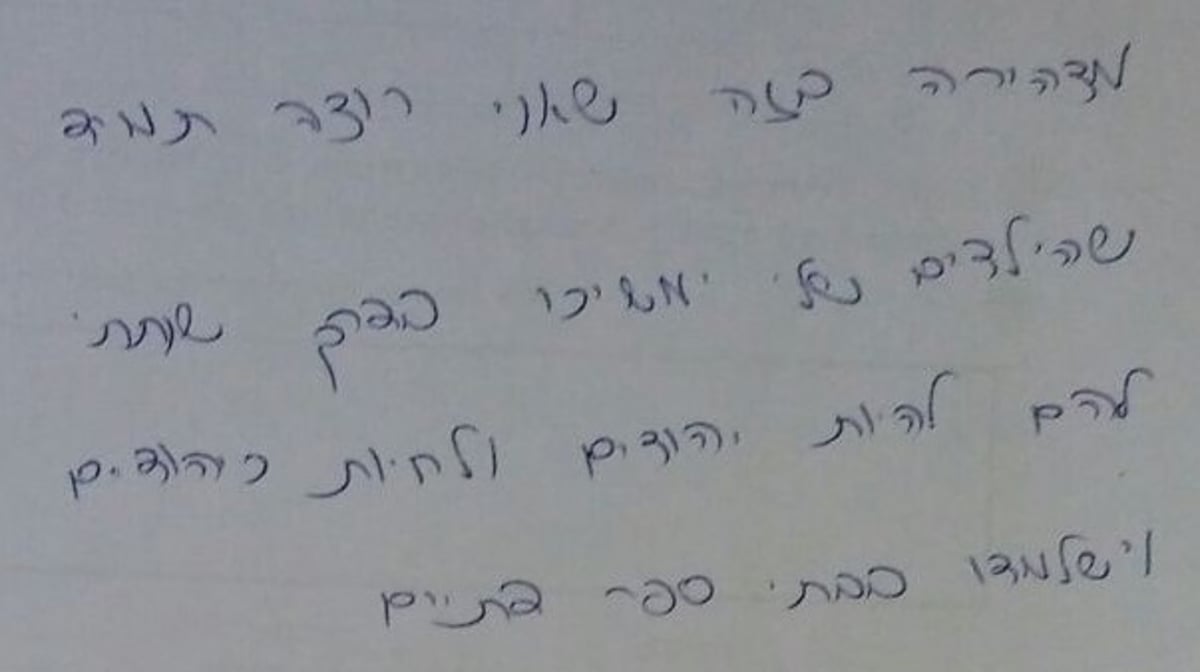 מצהירה בזה שאני רוצה תמיד
שהילדים שלי ימשיכו בדרך שנתתי
להם להיות יהודים ולחיות כיהודים
ושילמדו בבתי ספר דתיים